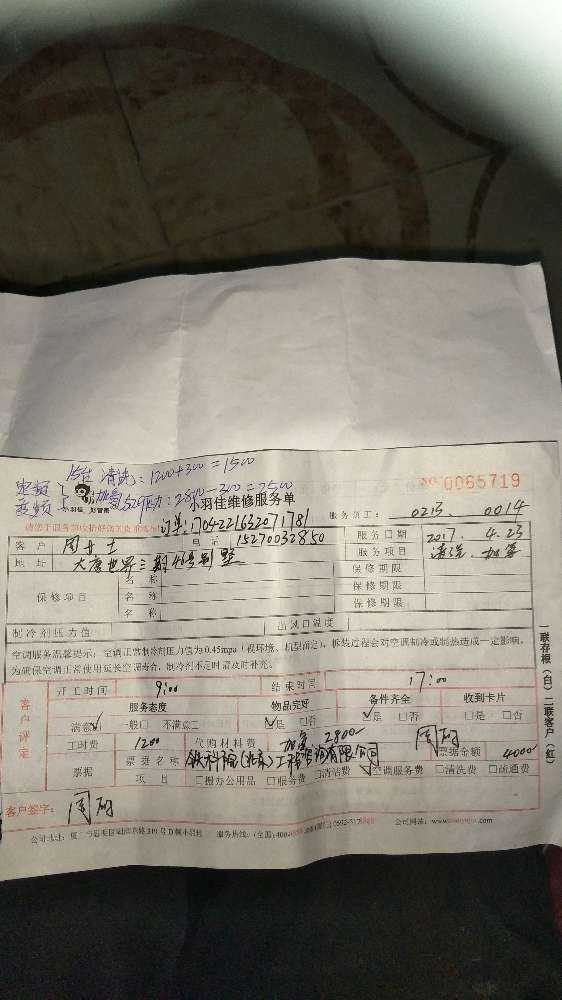 15台 清洗:1200+300=1500
定频
变频
加氟 5公斤压力:2800-300=2500
小羽佳 好管家
小羽佳维修服务单
NO 0065719
订单:17042216320717181
服务员工: 0213 0014
客 户 周女士 电 话 15270032850 服务日期 2017. 4. 23
地 址 大唐世界三期46号别墅 服务项目 清洗、加氟
保修项目
名 称 保修期限
名 称 保修期限
名 称 保修期限
制冷剂压力值 出风口温度
空调服务温馨提示:空调正常制冷剂压力值为0.45mpa(视环境、机型而定),拆装过程会对空调制冷或制热造成一定影响,
为确保空调正常使用延长空调寿命,制冷剂不足时请及时补充。
一联存根(白)二联客户(红)
客户评定
开工时间 9:00 结束时间 17:00
服务态度 物品完好 备件齐全 收到卡片
满意☑ 一般□ 不满意□ ☑是 □否 ☑是 □否 □是 □否
工时费 1200 代购材料费 加氟 2800 周
票据 票据名称 铁科院(北京)工程咨询有限公司 票据金额 4000
项 目 □办公用品 □服务费 □清洁费 ☑空调服务费 □清洗费 □疏通费
客户签字: 周
公司地址: 服务热线:(全国)400 公司网站: